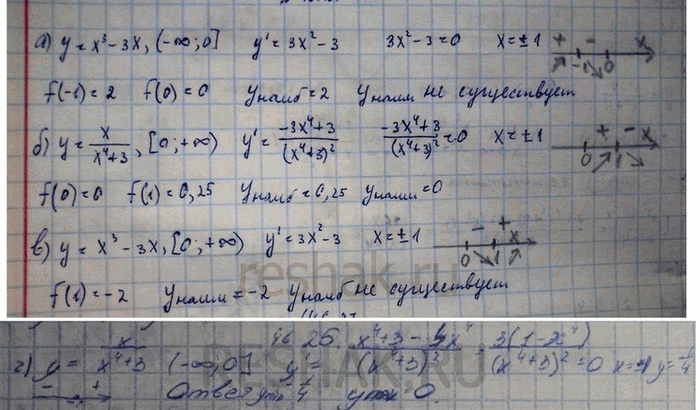 а) y = x³ - 3x, (-∞; 0] y' = 3x² - 3 3x² - 3 = 0 x = ± 1 + - x -1 0
f(-1) = 2 f(0) = 0 Yнаиб = 2 Yнаим не существует
б) y = x/(x⁴+3), [0; +∞) y' = (-3x⁴+3)/(x⁴+3)² (-3x⁴+3)/(x⁴+3)² = 0 x = ± 1 + - x 0 1
f(0) = 0 f(1) = 0,25 Yнаиб = 0,25 Yнаим = 0
в) y = x³ - 3x, [0; +∞) y' = 3x² - 3 x = ± 1 - + x 0 1
reshak.ru
f(1) = -2 Yнаим = -2 Yнаиб не существует
46 25.
г) y = x/(x⁴+3) (-∞; 0] y' = (x⁴+3-4x⁴)/(x⁴+3)² = 3(1-x⁴)/(x⁴+3)² = 0
RESHAK.RU
- + Ответ